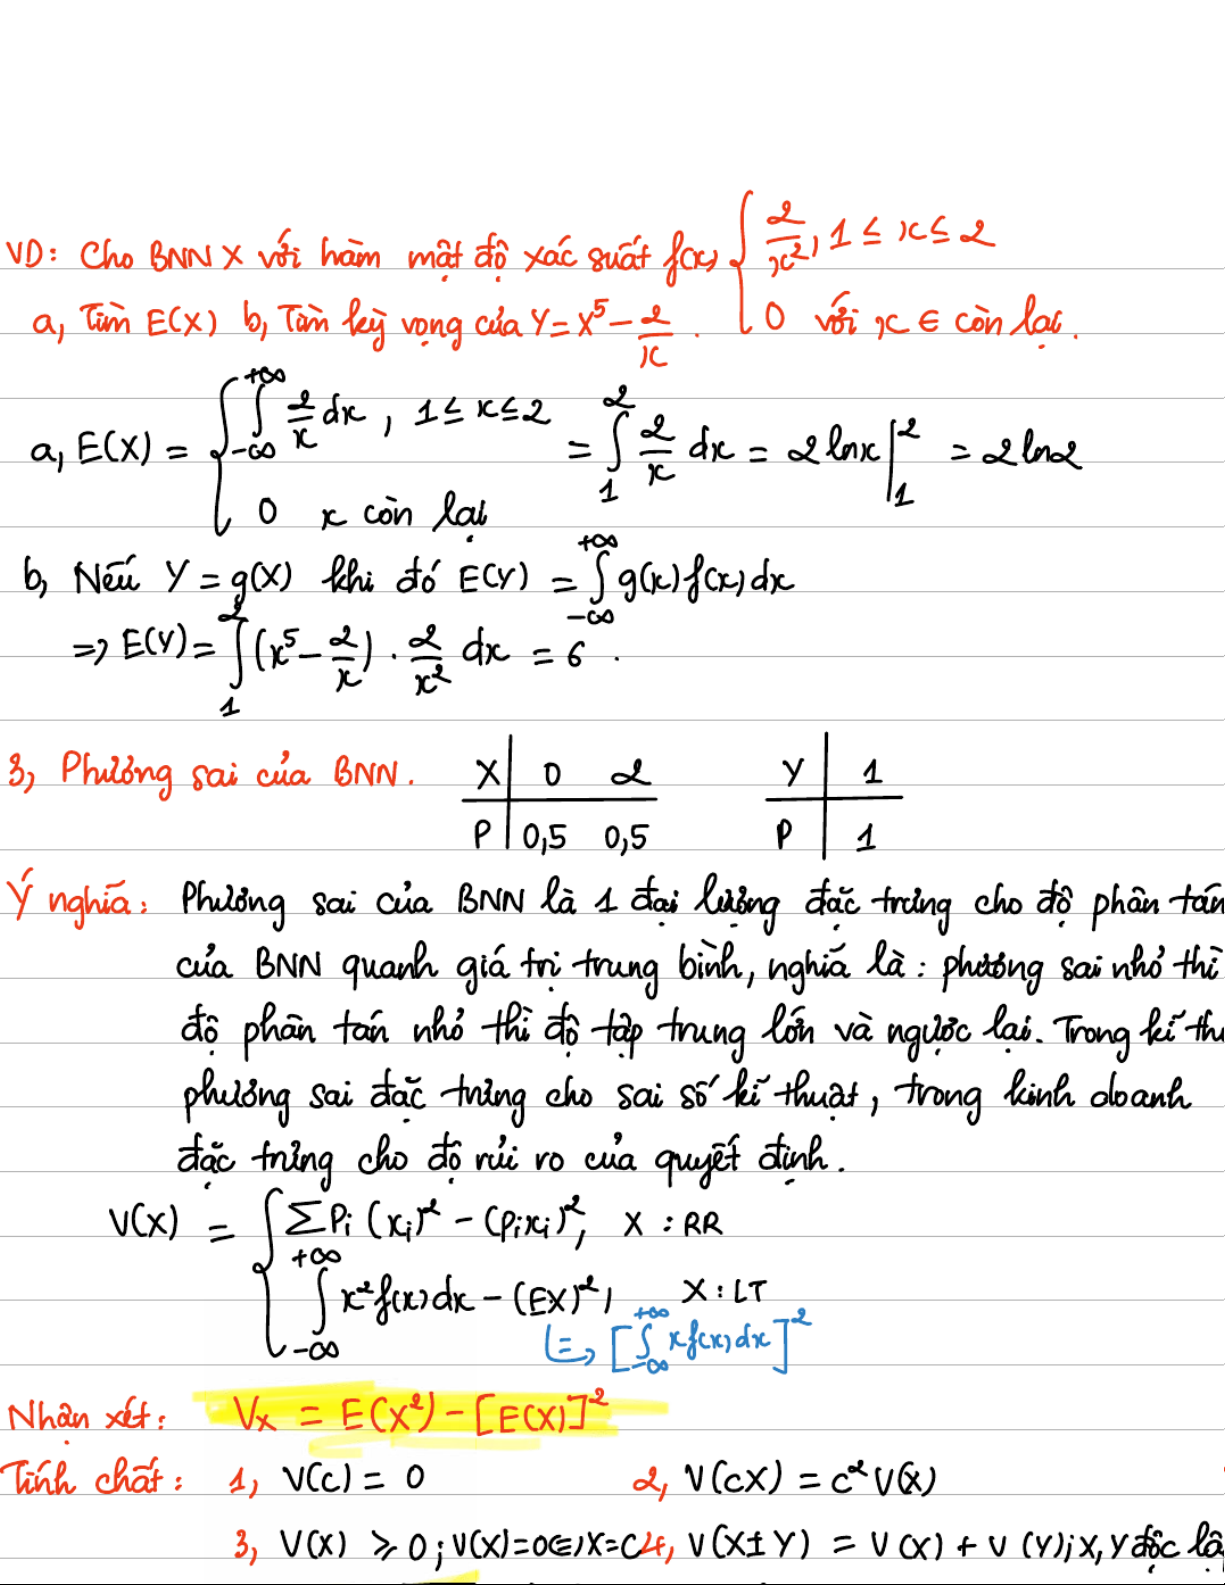 VD: Cho BNN X với hàm mật độ xác suất f(x) { 2/x², 1 ≤ x ≤ 2
a, Tìm E(X) b, Tìm kỳ vọng của Y = X⁵ - 2/x . { 0 với x ∈ còn lại.
a, E(X) = { ∫_{-∞}^{+∞} 2/x dx , 1 ≤ x ≤ 2 = ∫_1^2 2/x dx = 2 lnx |_1^2 = 2 ln2
0 x còn lại
b, Nếu Y = g(X) khi đó E(Y) = ∫_{-∞}^{+∞} g(x) f(x) dx
=> E(Y) = ∫_1^2 (x⁵ - 2/x) . 2/x² dx = 6 .
3, Phương sai của BNN. X | 0 2 Y | 1
P | 0,5 0,5 P | 1
Ý nghĩa: Phương sai của BNN là 1 đại lượng đặc trưng cho độ phân tán
của BNN quanh giá trị trung bình, nghĩa là: phương sai nhỏ thì
độ phân tán nhỏ thì độ tập trung lớn và ngược lại. Trong kĩ thu
phương sai đặc trưng cho sai số kĩ thuật, trong kinh doanh
đặc trưng cho độ rủi ro của quyết định.
V(X) = { ΣPi (xi)² - (pixi)², X : RR
∫_{-∞}^{+∞} x² f(x) dx - (EX)², X : LT
↳ = [∫_{-∞}^{+∞} x f(x) dx]²
Nhận xét: Vx = E(X²) - [E(X)]²
Tính chất: 1, V(c) = 0 2, V(cX) = c² V(X)
3, V(X) ≥ 0 ; V(X)=0 <=> X=C 4, V(X±Y) = V(X) + V(Y); X, Y độc lậ